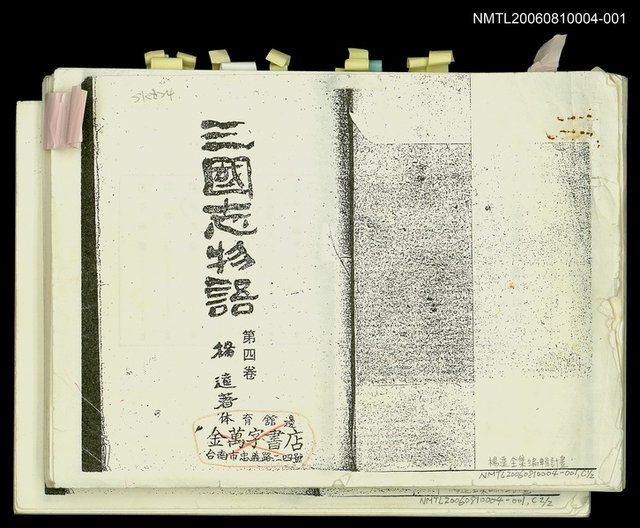 NMTL20060810004-001
三國志物語
第四卷
楊逵著
体育館邊
金萬字書店
台南市忠義路二四號
楊逵全集編輯計畫
NMTL20060810004-001, C1/2
NMTL20060810004-001, C2/2